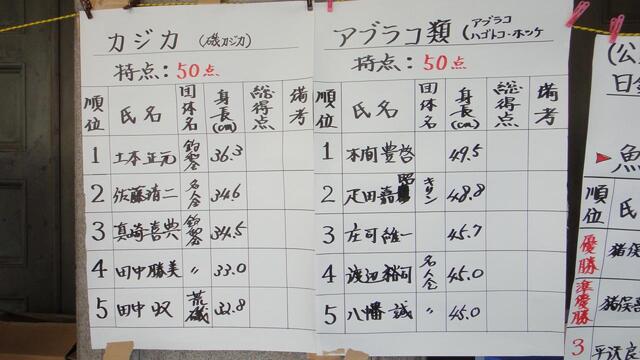 カジカ (磯カジカ)
持点:50点
順位 氏名 団体名 身長(cm) 総得点 備考
1 土本正元 釣翆会 36.3
2 佐藤清二 名人会 34.6
3 真崎喜典 34.5
4 田中勝美 〃 33.0
5 田中収 荒磯 32.8
アブラコ類 (アブラコ
ハゴトコ・ホッケ
持点:50点
順位 氏名 団体名 身長(cm) 総得点 備考
1 本間豊啓 49.5
2 疋田嘉昭 キタン 48.8
3 庄司維一 45.7
4 渡辺裕司 名人会 45.0
5 八幡誠 〃 45.0
(公
日釣
魚
順位 氏
優勝 猪俣
準優勝 猪俣
3 平沢